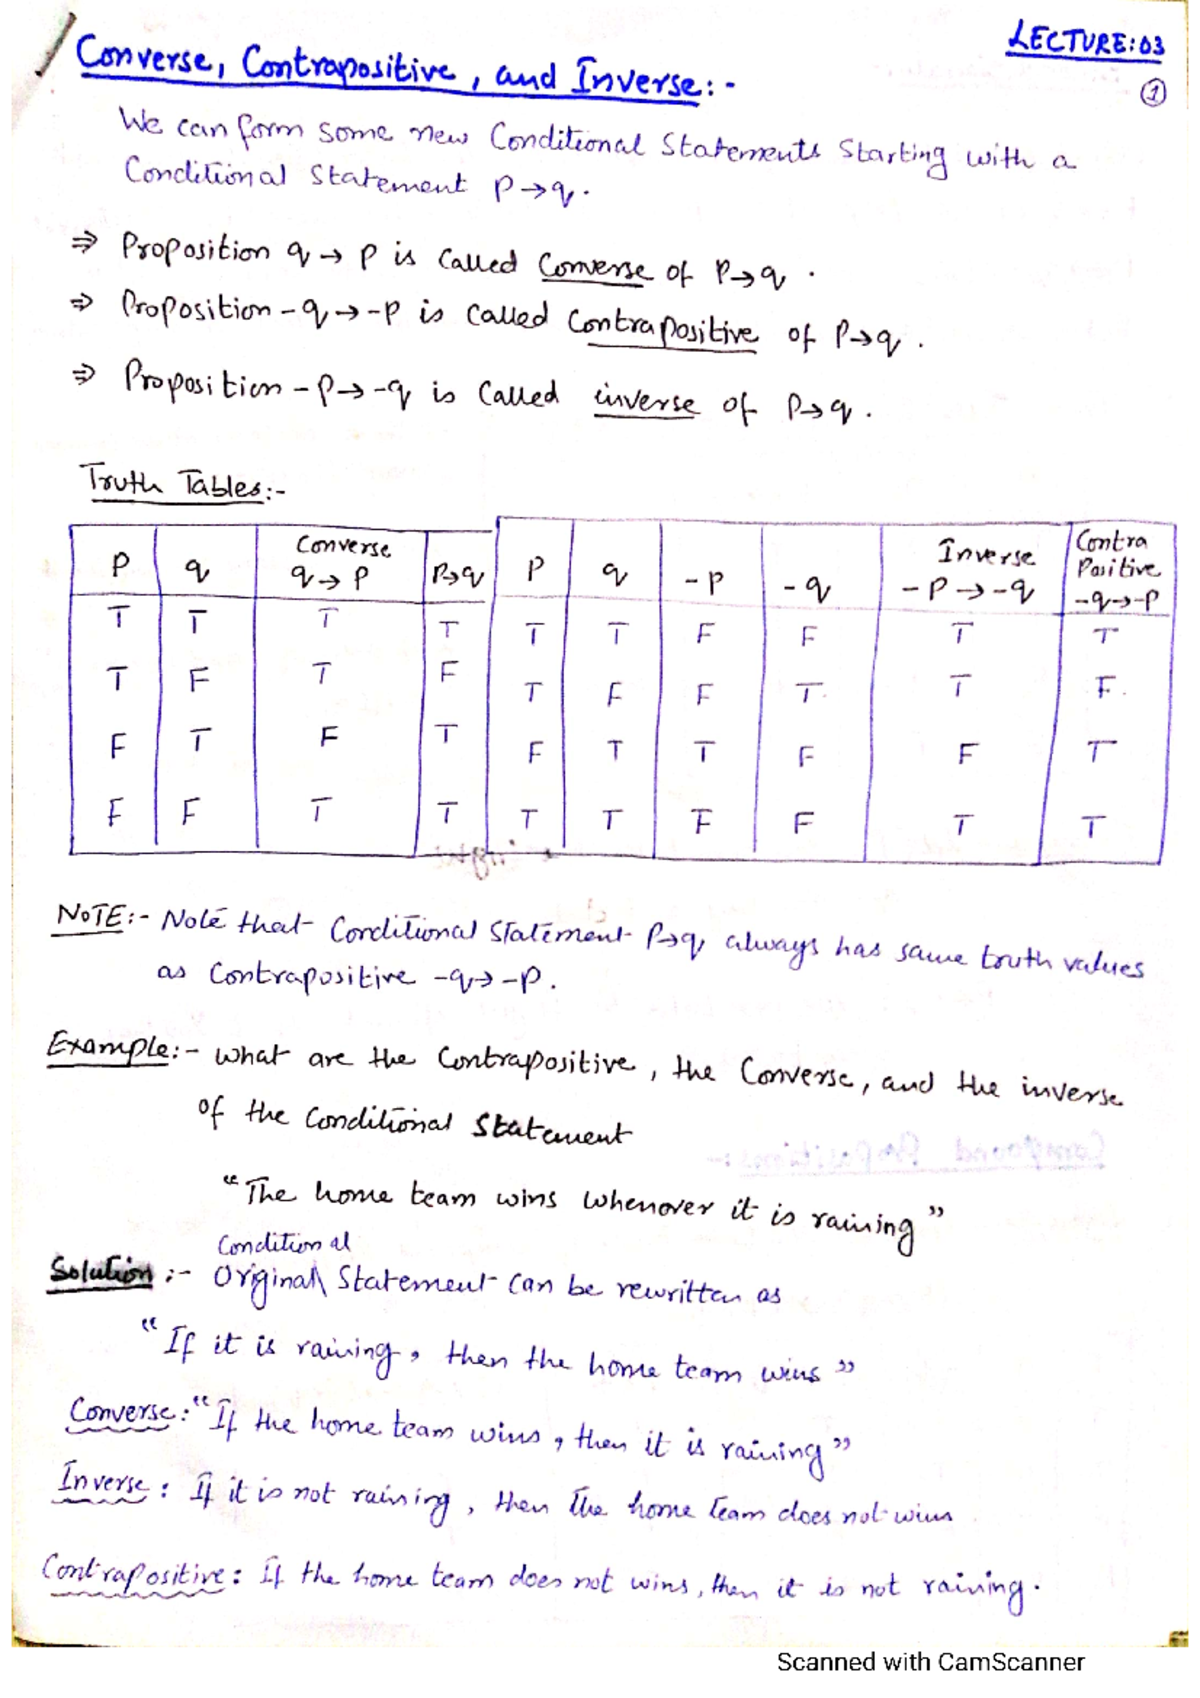 LECTURE:03
①
Converse, Contrapositive, and Inverse:-
We can form some new Conditional Statements Starting with a
Conditional Statement P→q.
⇒ Proposition q→P is called Converse of P→q.
⇒ Proposition -q→-P is called Contrapositive of P→q.
⇒ Proposition -P→-q is called inverse of P→q.
Truth Tables:-
P q Converse q→P P→q P q -P -q Inverse -P→-q Contra Positive -q→-P
T T T T T T F F T T
T F T F T F F T T F
F T F T F T T F F T
F F T T T T F F T T
NOTE:- Note that Conditional Statement P→q always has same truth values
as Contrapositive -q→-P.
Example:- What are the Contrapositive, the Converse, and the inverse
of the Conditional Statement
“The home team wins whenever it is raining”
Conditional
Solution:- Original Statement can be rewritten as
“If it is raining, then the home team wins”
Converse: “If the home team wins, then it is raining”
Inverse: If it is not raining, then The home team does not wins
Contrapositive: If the home team does not wins, then it is not raining.
Scanned with CamScanner